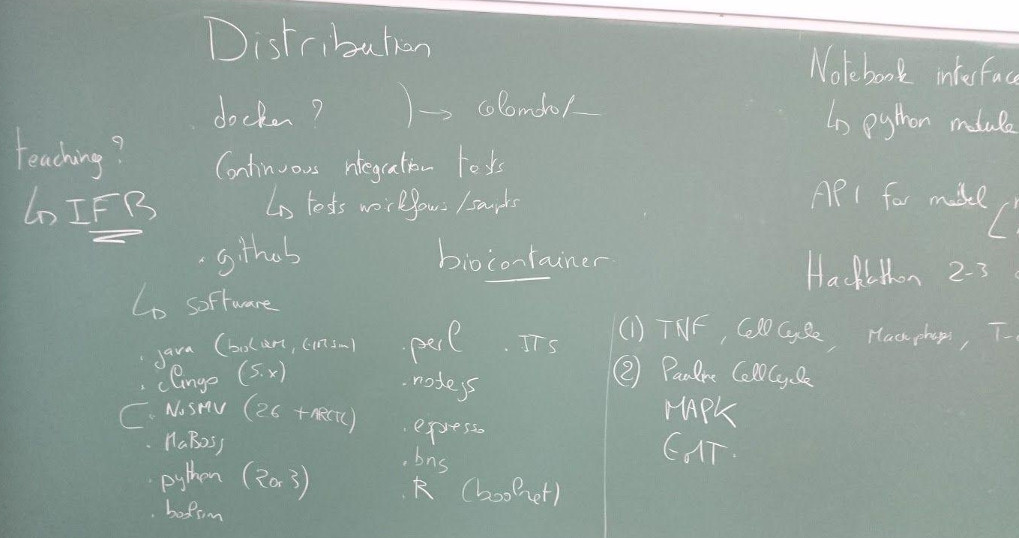 Distribution
docker ? ) → colomoto/
Continuous ntegration tests
↳ tests workflows/scripts
teaching ?
↳ IFB
. github
biocontainer
↳ software
. java (
. clingo (5.x)
. NuSMV (26 + ARCTL)
. MaBoss
. python (2 or 3)
. boolsim
. perl
. ITS
. nodejs
. espresso
. bns
. R (boolnet)
Notebook interface
↳ python module
API for model
Hackathon 2-3
(1) TNF, Cell Cycle, Macrophages, T-
(2) Pauline Cell Cycle
MAPK
EMT.